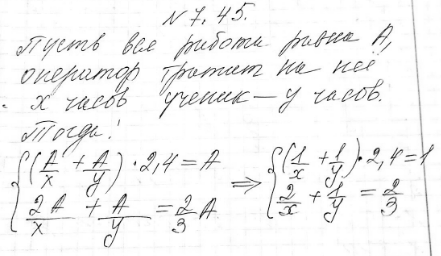 N 7.45.
Пусть вся работа равна А,
оператор тратит на неё
x часов ученик – y часов.
Тогда:
{ (A/x + A/y) · 2,4 = A ⇒ { (1/x + 1/y) · 2,4 = 1
{ 2A/x + A/y = 2/3 A { 2/x + 1/y = 2/3